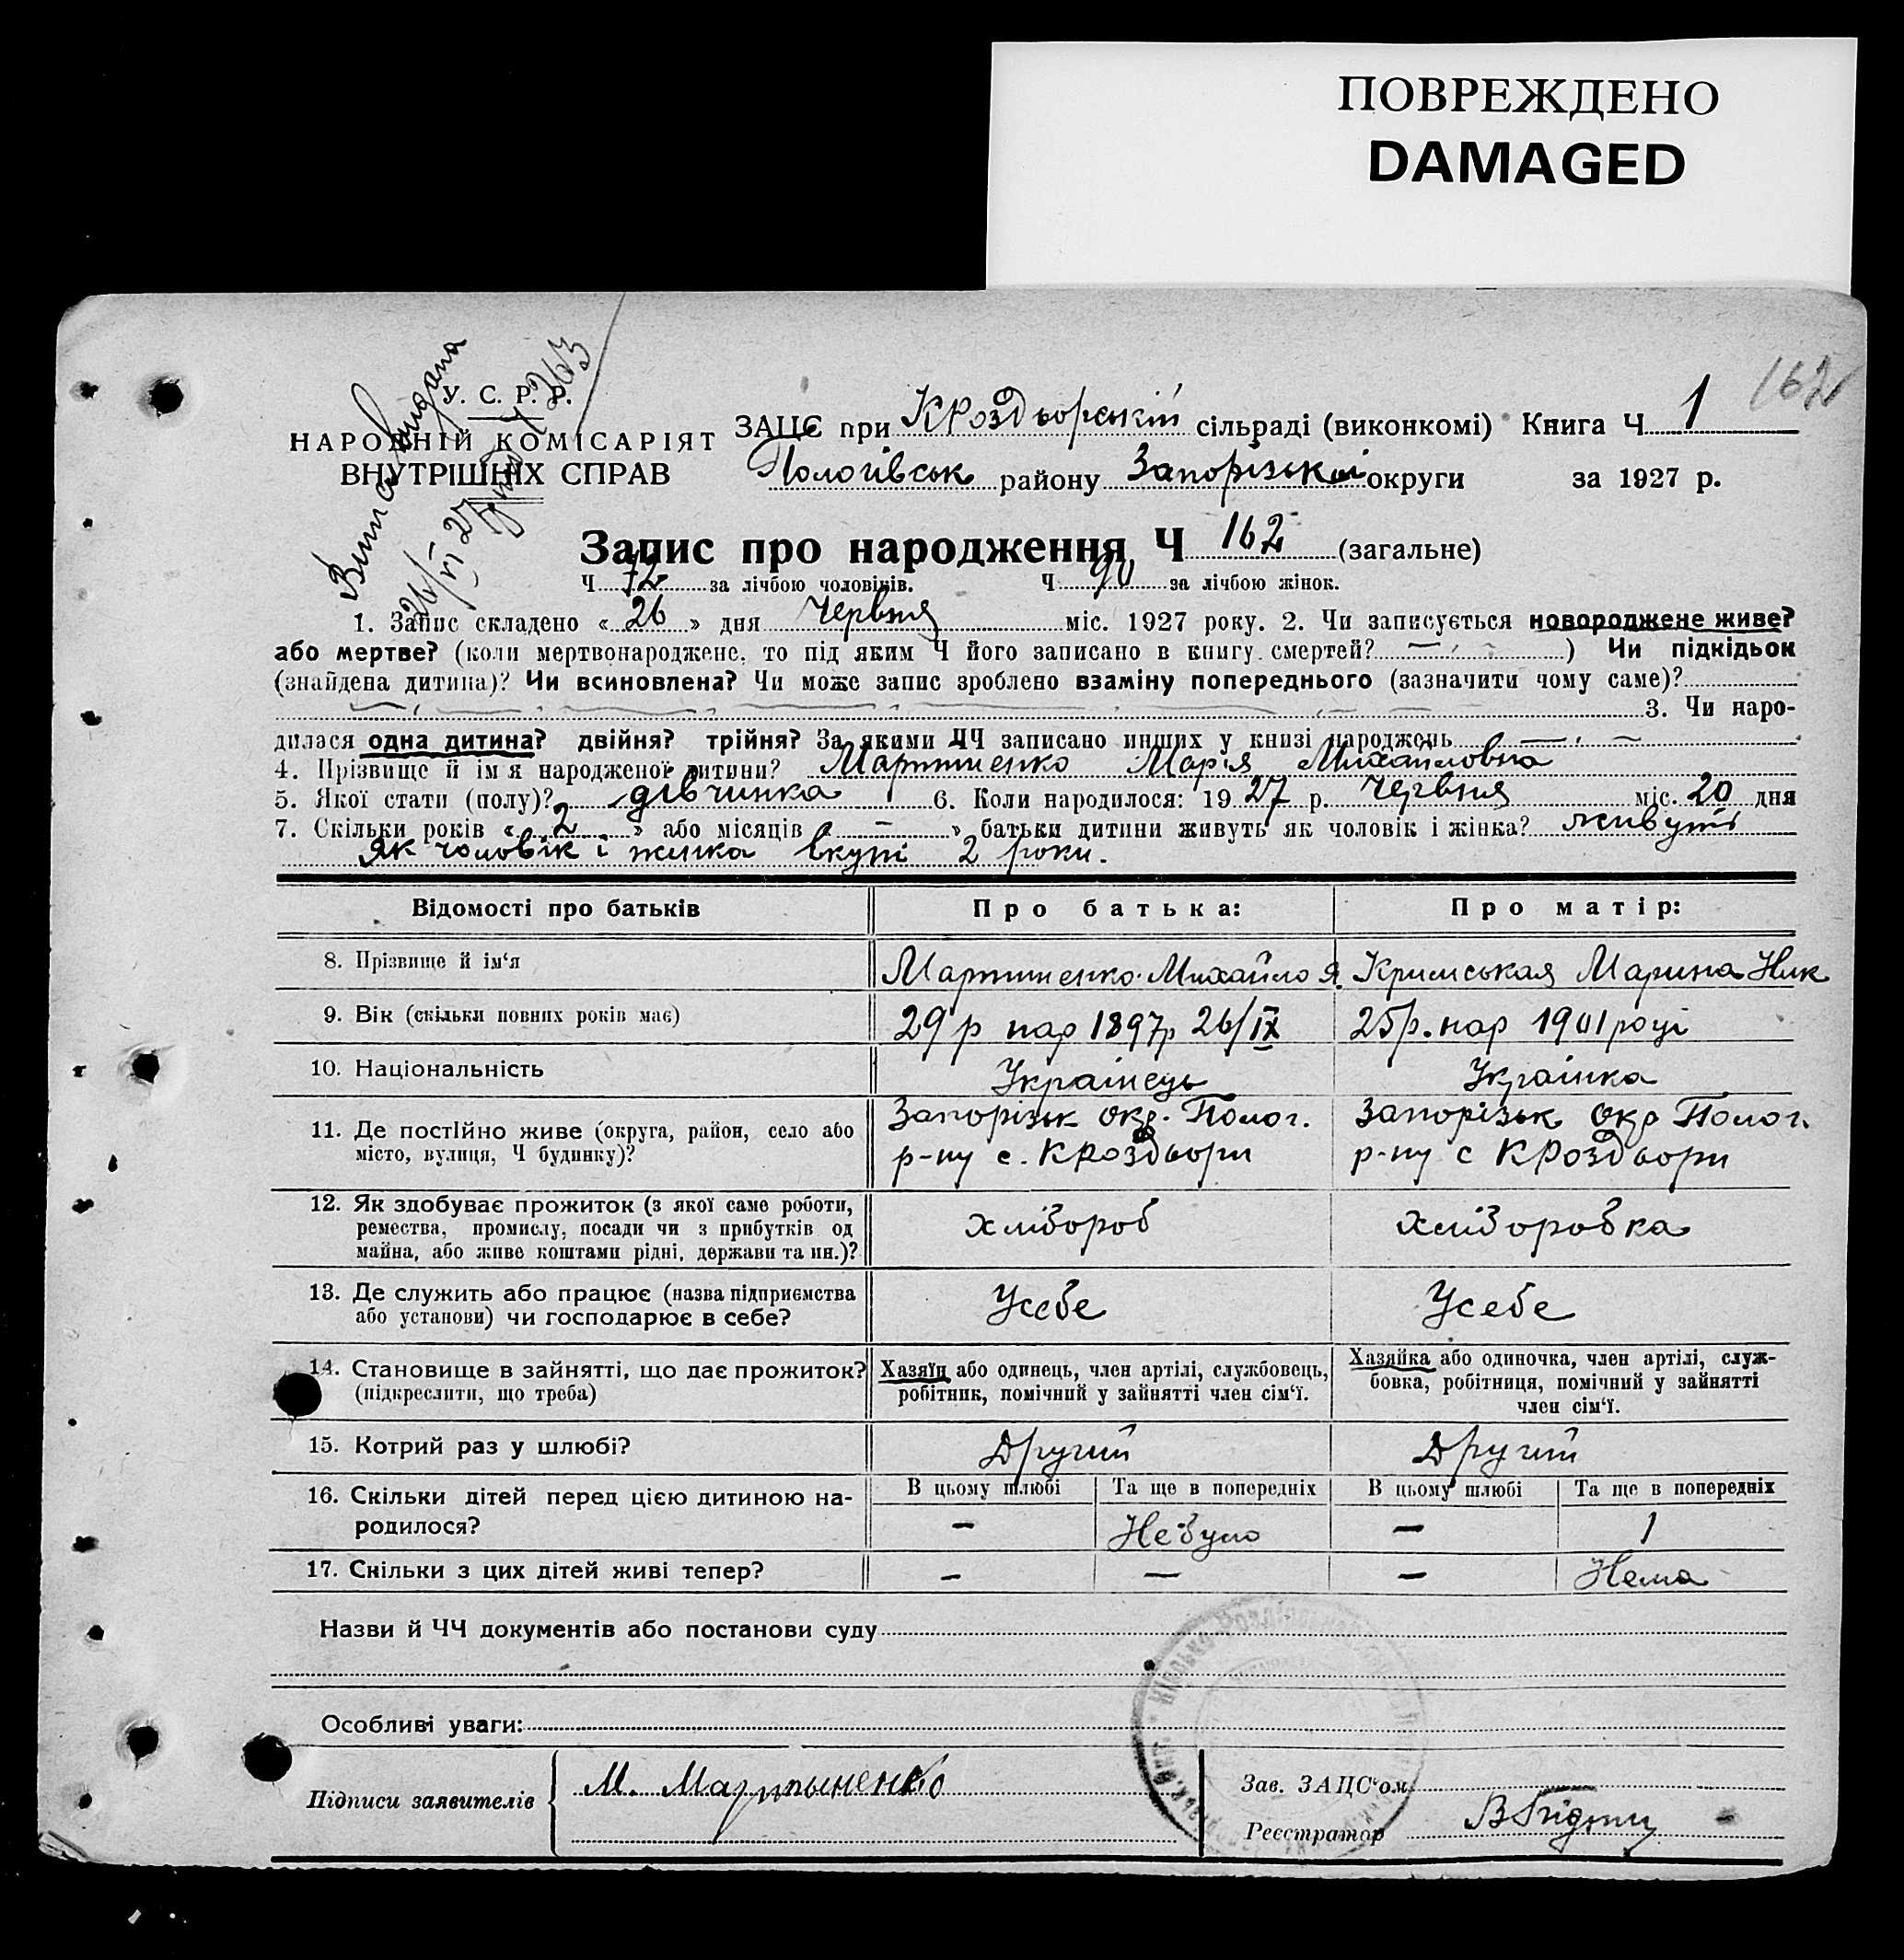 ПОВРЕЖДЕНО
DAMAGED
162
У. С. Р. Р.
НАРОДНІЙ КОМІСАРІЯТ
ВНУТРІШНІХ СПРАВ
Виписа видана
26/VI 27 р
263
ЗАЦС при КРоздворській сільраді (виконкомі) Книга Ч 1
Пологівськ району Запорізької округи за 1927 р.
Запис про народження Ч 162 (загальне)
Ч 72 за лічбою чоловіків. Ч 90 за лічбою жінок.
1. Запис складено « 26 » дня Червня міс. 1927 року. 2. Чи записується новороджене живе?
або мертве? (коли мертвонароджене, то під яким Ч його записано в книгу смертей? — ) Чи підкідьок
(знайдена дитина)? Чи всиновлена? Чи може запис зроблено взаміну попереднього (зазначити чому саме)?
3. Чи наро-
дилася одна дитина? двійня? трійня? За якими ЧЧ записано инших у книзі народжень —
4. Прізвище й ім'я народженої дитини? Мартиненко Марія Михайловна
5. Якої стати (полу)? дівчинка 6. Коли народилося: 1927 р. Червня міс. 20 дня
7. Скільки років « 2 » або місяців « — » батьки дитини живуть як чоловік і жінка? живуть
як чоловік і жинка вкупі 2 роки.
Відомості про батьків Про батька: Про матір:
8. Прізвище й ім'я Мартиненко Михайло Я. Кримськая Марина Ник
9. Вік (скільки повних років має) 29 р нар 1897 р 26/IX 25 р. нар 1901 році
10. Національність Українець Українка
11. Де постійно живе (округа, район, село або місто, вулиця, Ч будинку)? Запорізьк окр. Полог. Запорізьк окр Полог.
р-ну с. КРоздвори р-ну с КРоздвори
12. Як здобуває прожиток (з якої саме роботи,
ремества, промислу, посади чи з прибутків од
майна, або живе коштами рідні, держави та ин.)? хлібороб хліборобка
13. Де служить або працює (назва підприємства
або установи) чи господарює в себе? Усебе Усебе
14. Становище в зайнятті, що дає прожиток?
(підкреслити, що треба)
Хазяїн або одинець, член артілі, службовець,
робітник, помічний у зайнятті член сім'ї.
Хазяйка або одиночка, член артілі, служ-
бовка, робітниця, помічний у зайнятті
член сім'ї.
15. Котрий раз у шлюбі? Другий Другий
16. Скільки дітей перед цією дитиною на-
родилося?
В цьому шлюбі Та ще в попередніх В цьому шлюбі Та ще в попередніх
— Небуло — 1
17. Скільки з цих дітей живі тепер? — — — Нема
Назви й ЧЧ документів або постанови суду
Особливі уваги:
Підписи заявителів М. Мартыненко
Зав. ЗАЦС'ом
Реєстратор